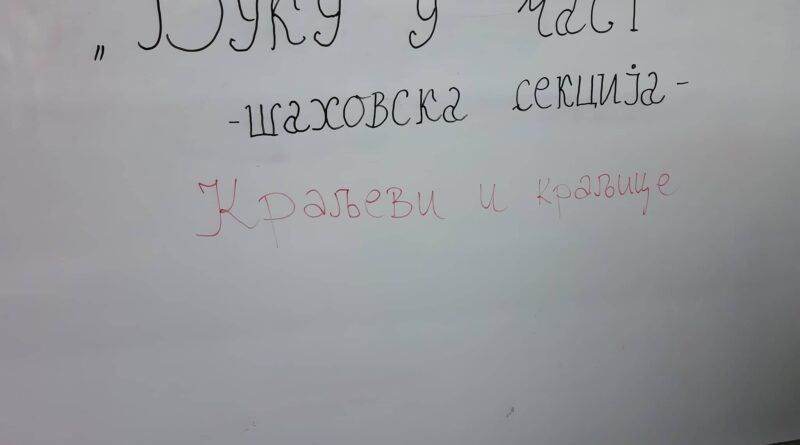 „Вуку у част
-шаховска секција-
Краљеви и краљице